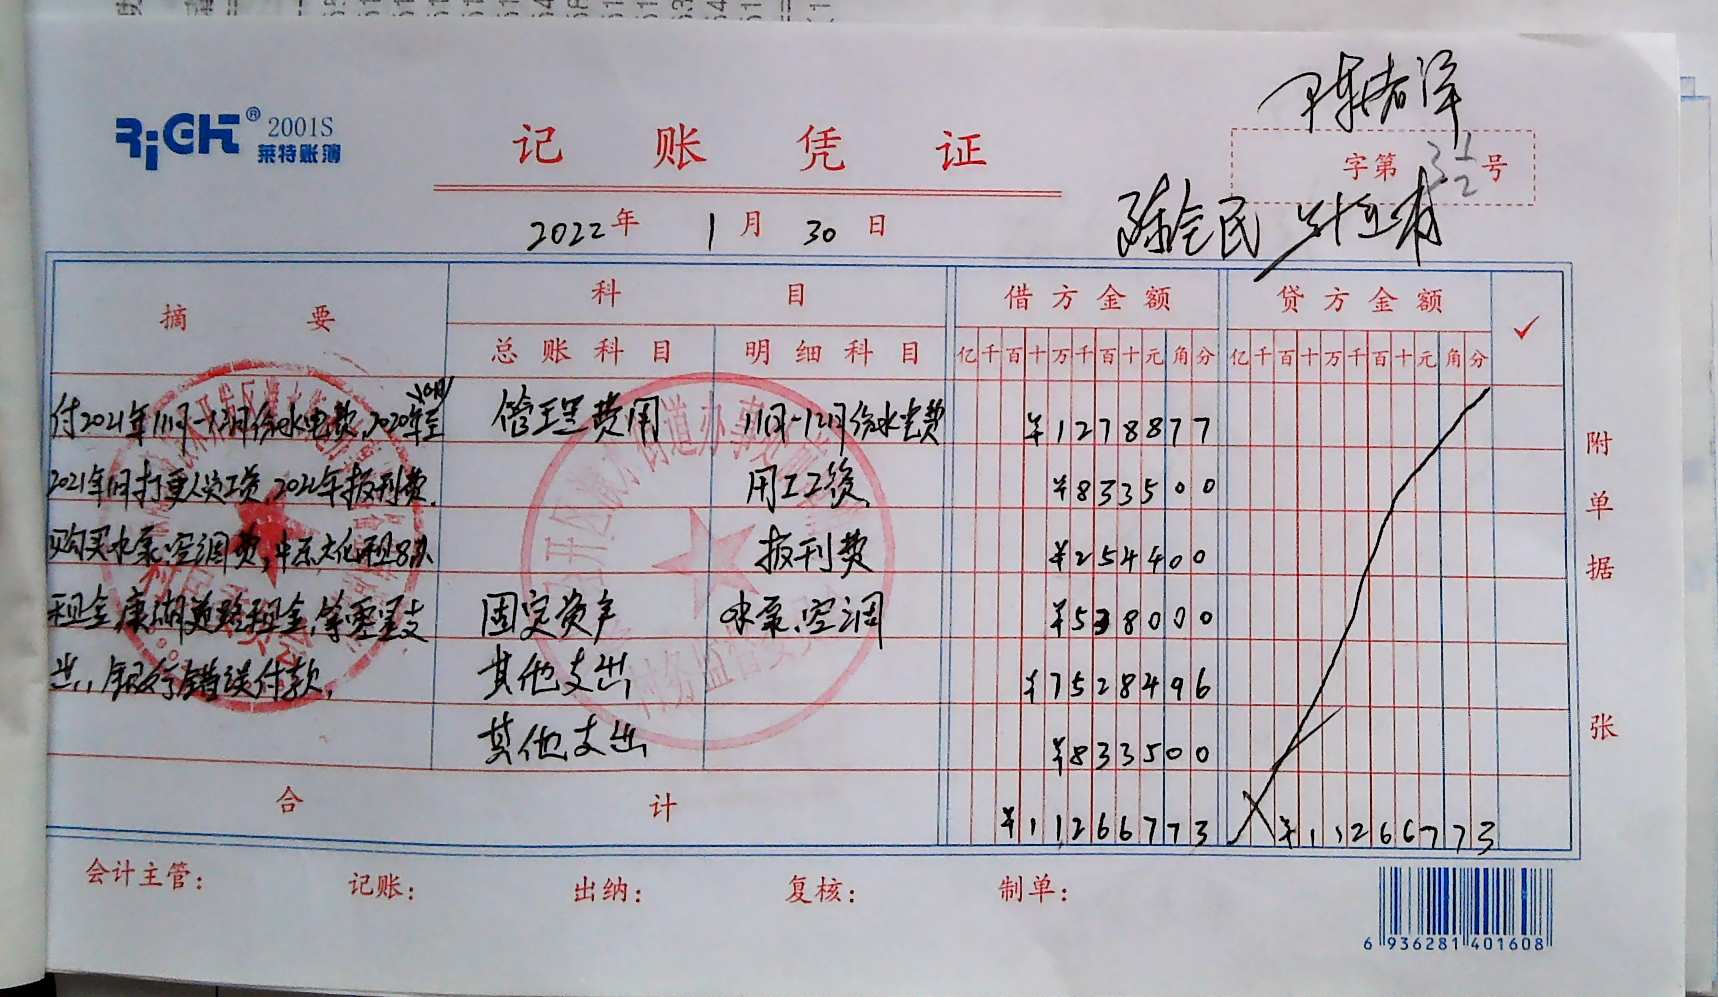 RiCH® 2001S
莱特账簿
记账凭证
字第 3 1/2 号
2022年 1月 30日
陈会民
摘要 科目 借方金额 贷方金额 ✓
总账科目 明细科目 亿千百十万千百十元角分 亿千百十万千百十元角分
付2021年11月-12月份水电费,2020年至 管理费用 11月-12月份水电费 ¥1278877
2021年 月打 人员工资,2022年报刊费, 用工工资 ¥833500
购买水泵.空调费, 文化租8队 报刊费 ¥254400
租金康湖道路租金,等零星支 固定资产 水泵.空调 ¥538000
出,银行错误付款, 其他支出 ¥7528496
其他支出 ¥833500
合计 ¥11266773 ¥11266773
附单据 张
会计主管: 记账: 出纳: 复核: 制单:
6 936281 401608